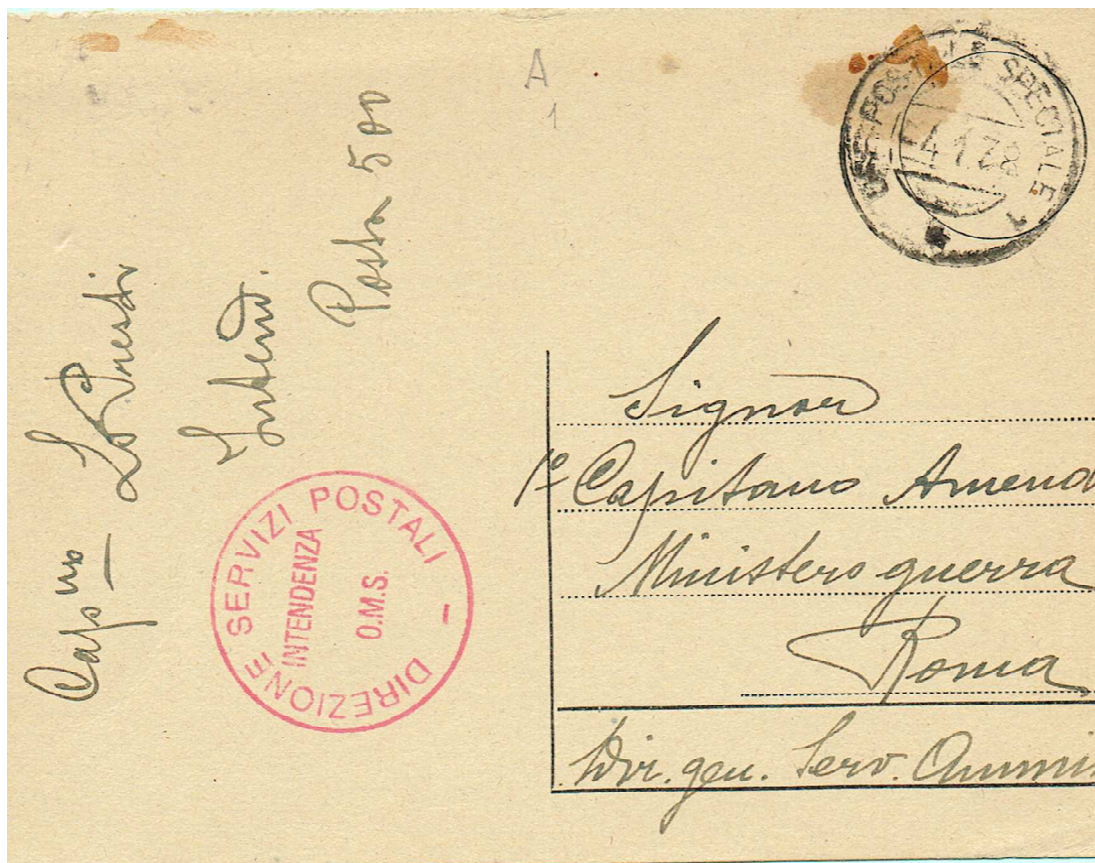 A
1
UFF. POSTALE SPECIALE 1
4.1.38
Cap.no Lo Presti
Intend.
Posta 500
DIREZIONE SERVIZI POSTALI -
INTENDENZA
O.M.S.
Signor
1° Capitano Amend
Ministero guerra
Roma
Dir. gen. Serv. Ammi